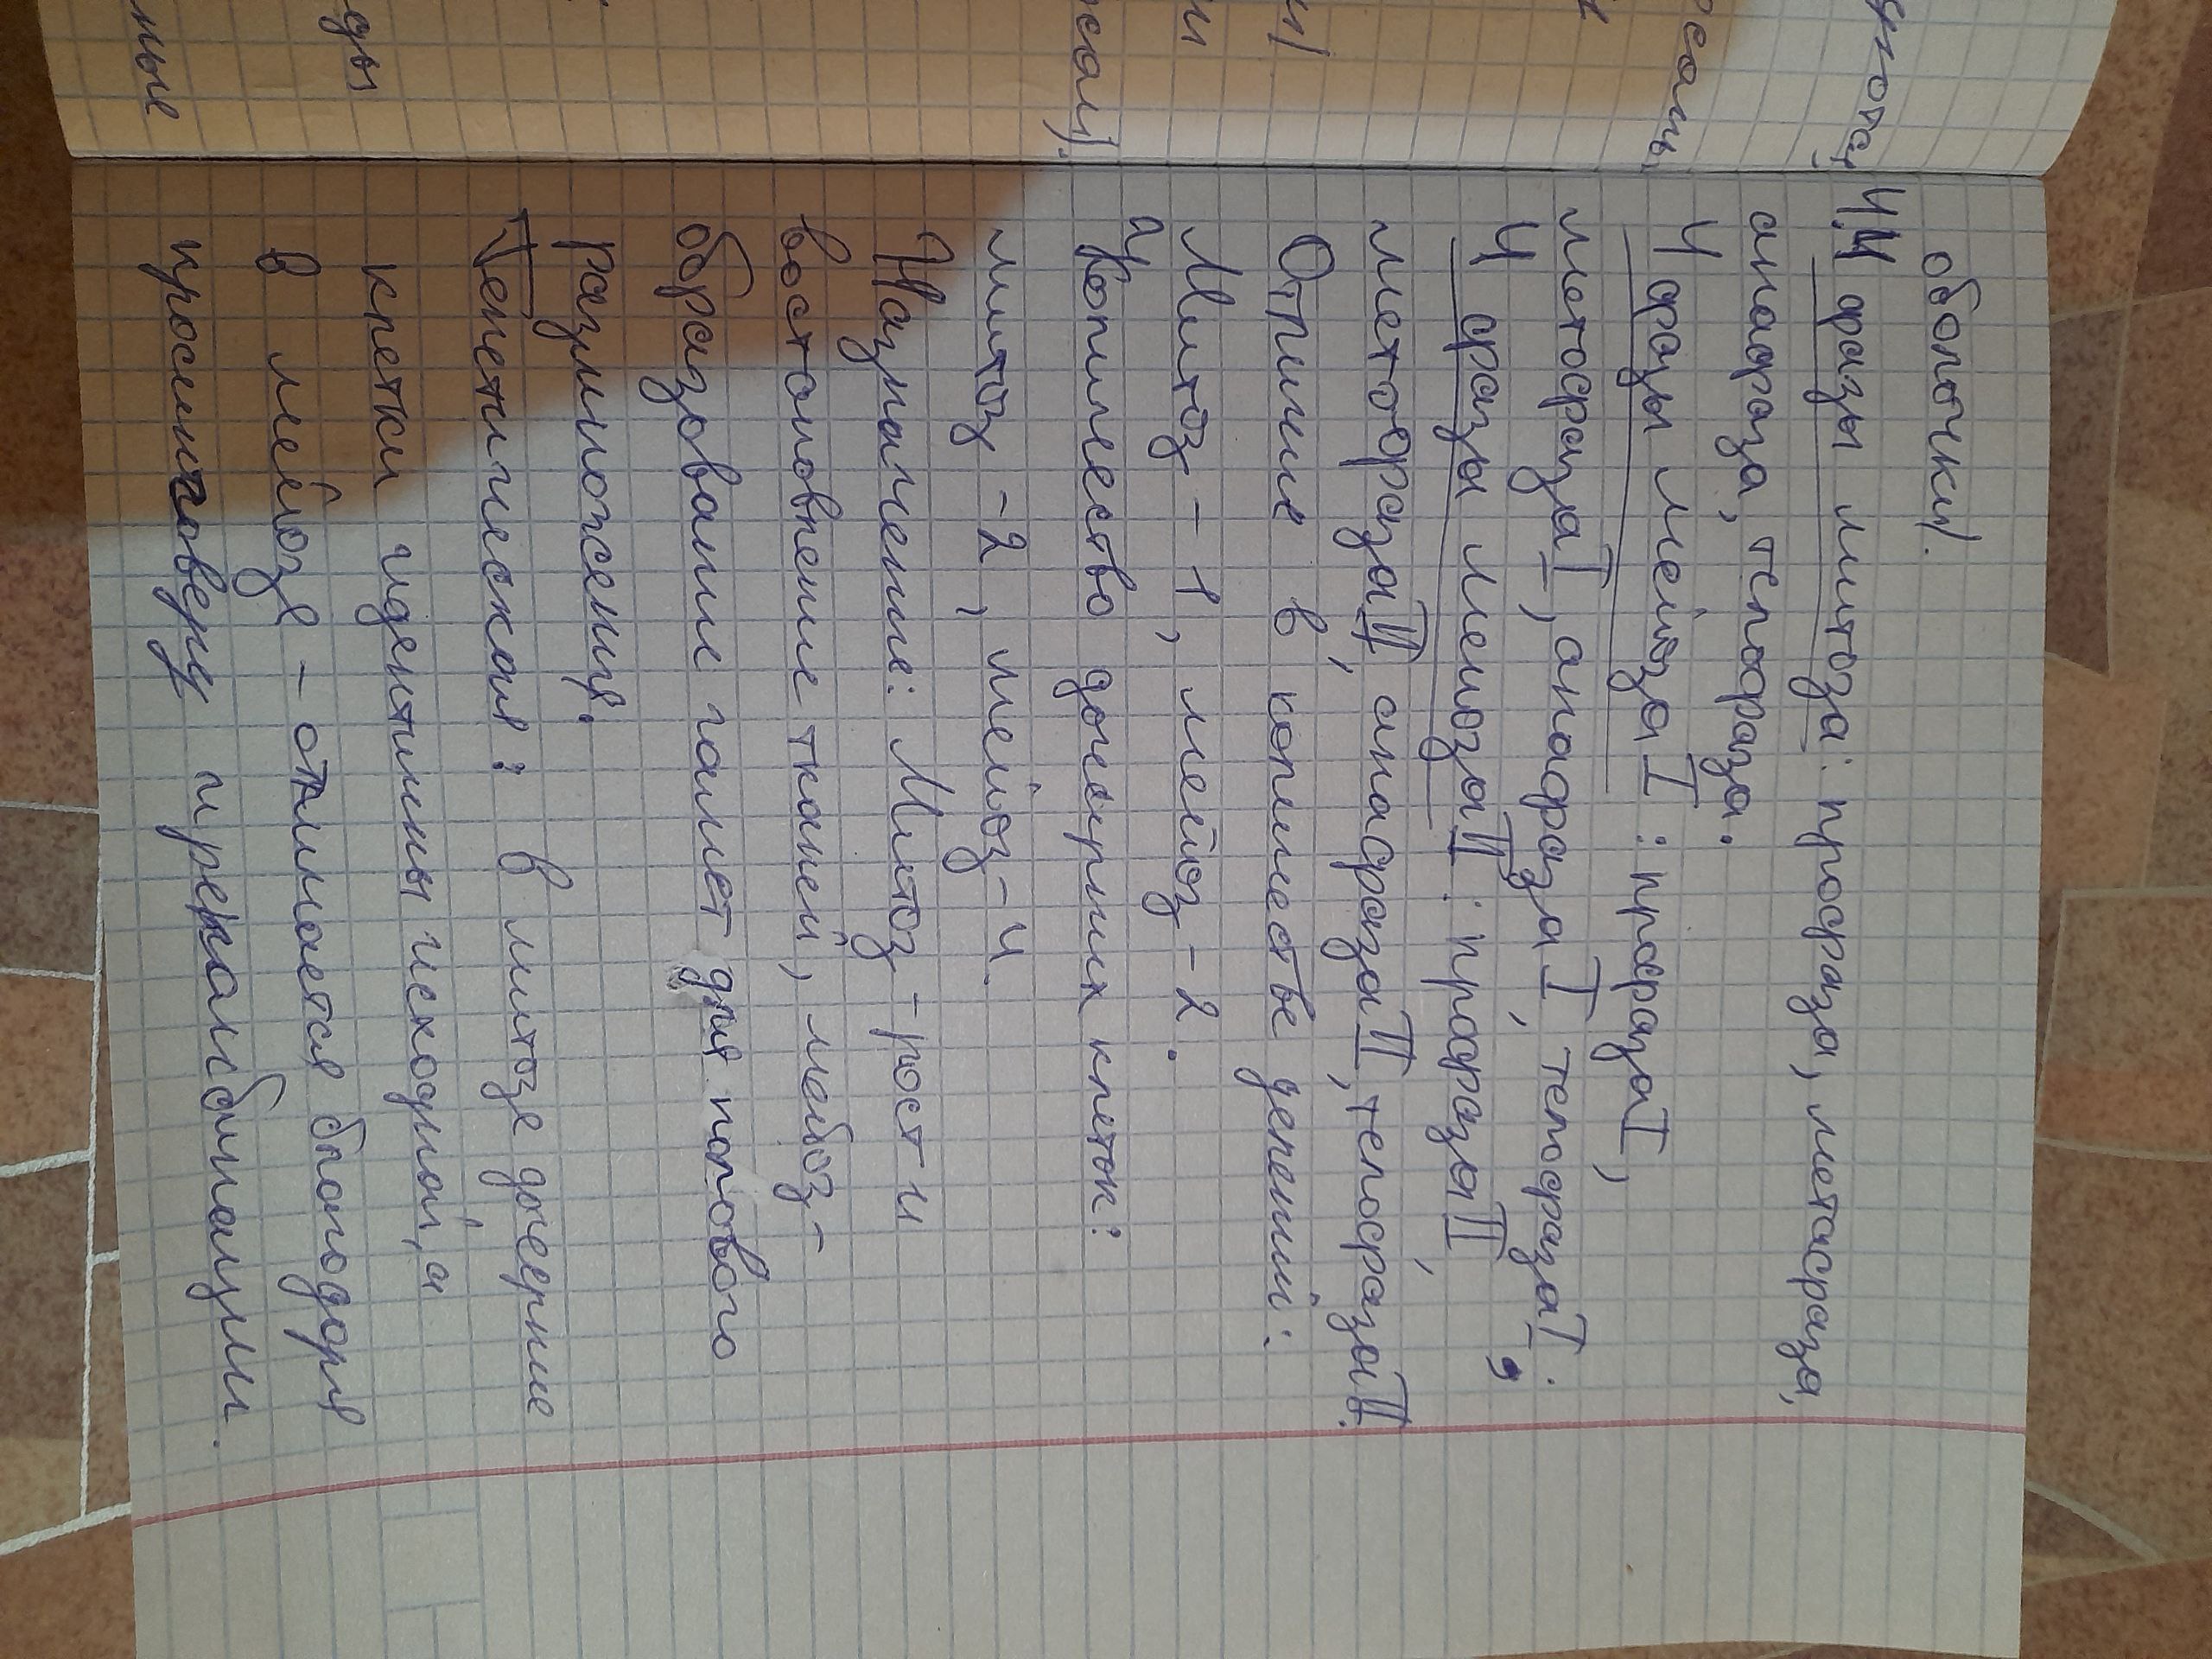 оболочки).
4. 4 фазы митоза: профаза, метафаза,
анафаза, телофаза.
4 фазы мейоза I : профаза I,
метафаза I, анафаза I, телофаза I.
4 фазы меиоза II : профаза II,
метафаза II, анафаза II, телофаза II.
Отличие в количестве делений:
Митоз - 1, мейоз - 2.
Количество дочерних клеток:
митоз - 2, мейоз - 4.
Назначение: Митоз - рост и
востановление тканей, мейоз -
образование гамет для полового
размножения.
Генетическая: в митозе дочерние
клетки идентичны исходной, а
в мейозе - отличается благодоря
кросинговеру и рекомбинации.
сами).
ды